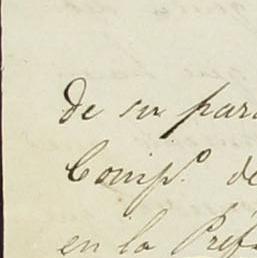 de su para
Compº. de
en la Pref